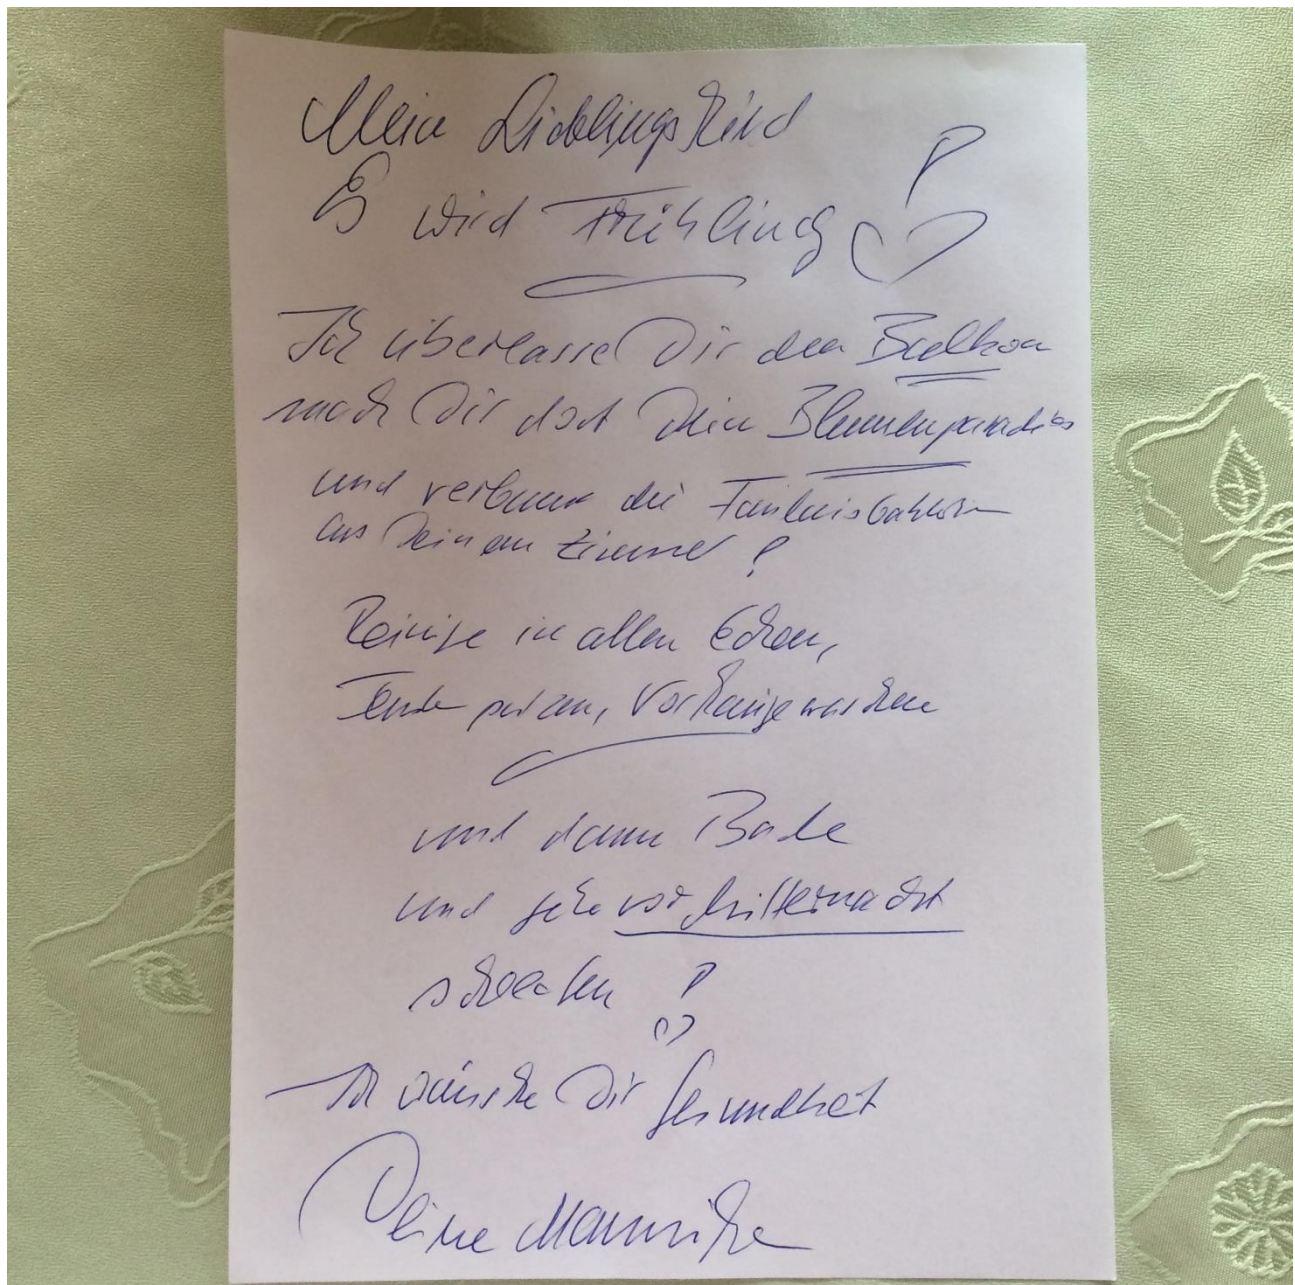 Mein Lieblingskind
Es wird Frühling!
Ich überlasse Dir den Balkon
mach Dir dort Dein Blumenparadies
und verbann die Fäulnisbakterien
aus Deinem Zimmer!
Reinige in allen Ecken,
Fenster putzen, Vorhänge waschen
und dann Bade
und gehe vor Mitternacht
schlafen!
Ich wünsche Dir Gesundheit
Deine